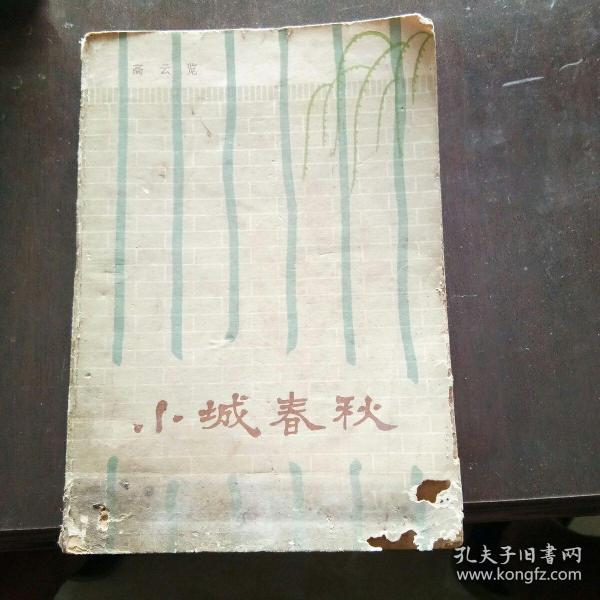 高云览
小城春秋
孔夫子旧書网
www.kongfz.com